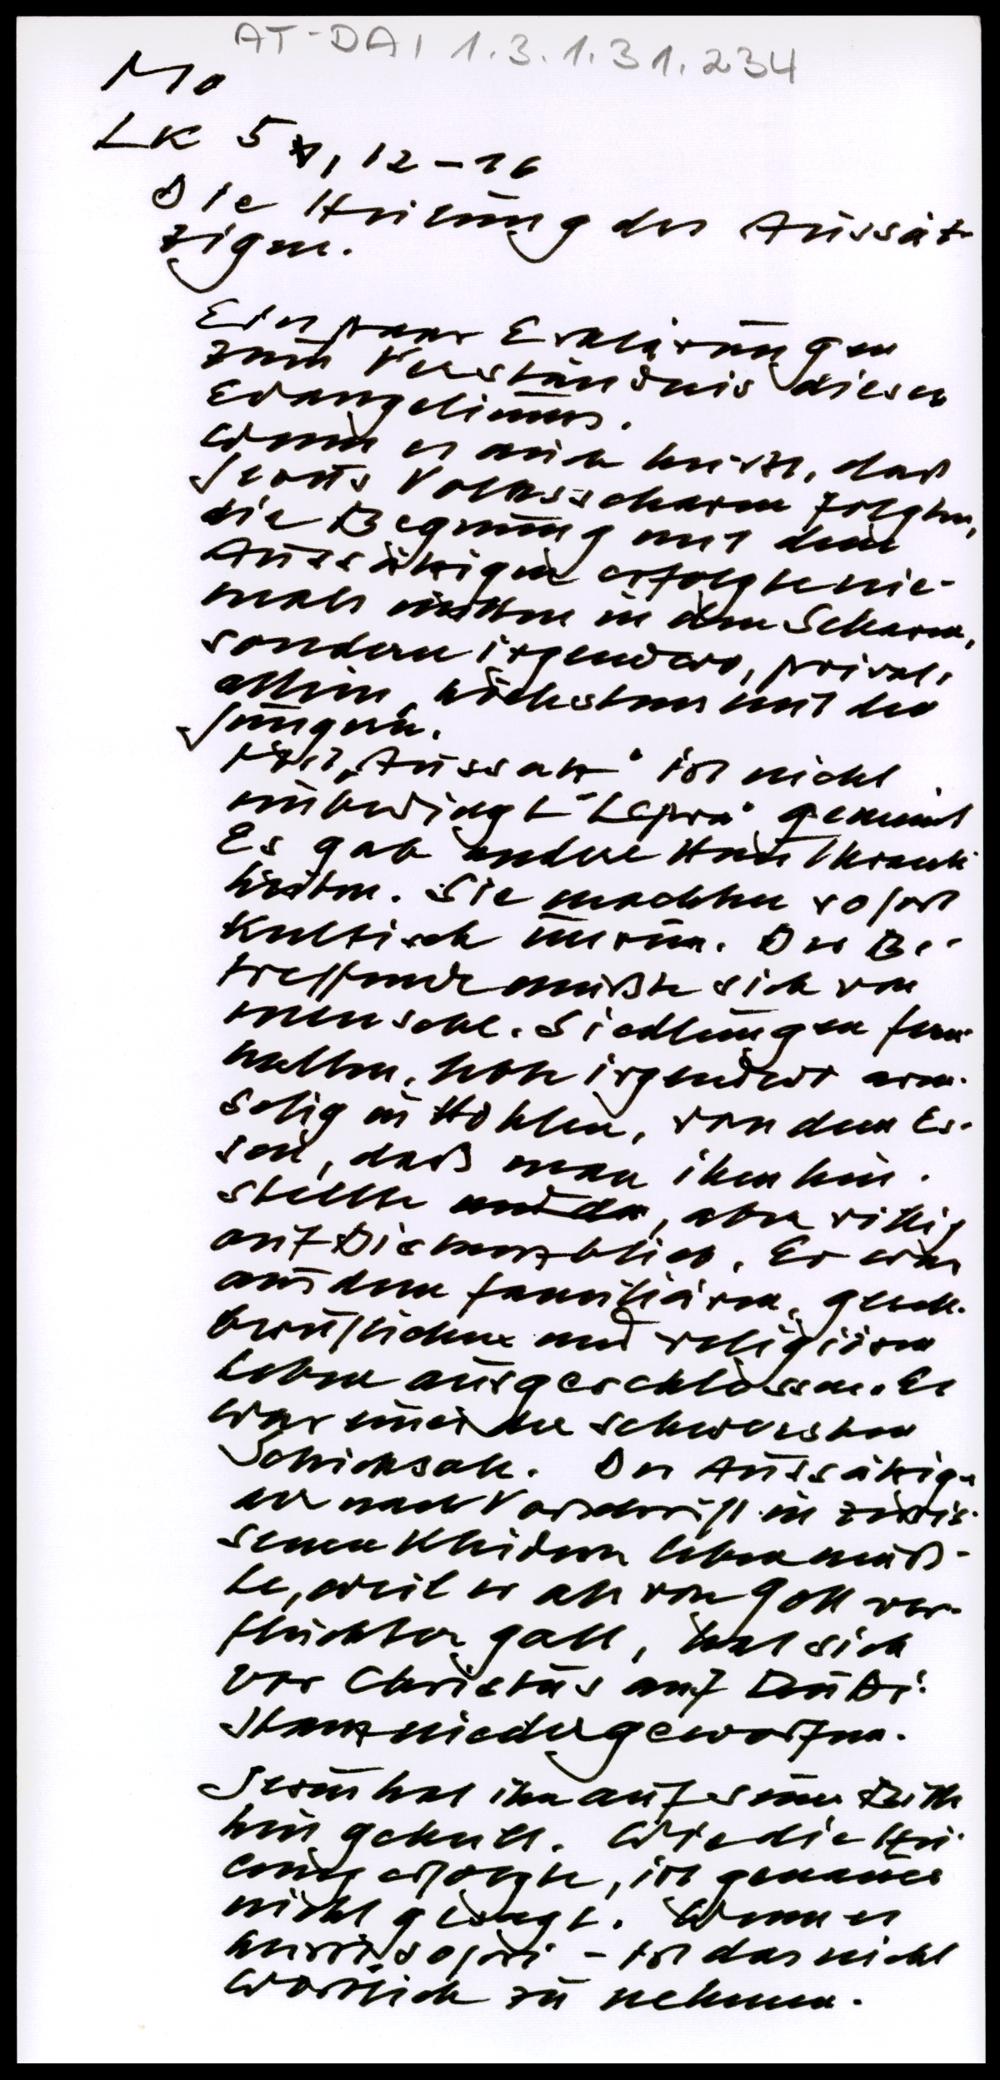 AT-DAI 1.3.1.31.234
Mo
LK 5, 12-16
Die Heilung des Aussät
zigen.
Ein paar Erklärungen
zum Verständnis dieses
Evangeliums.
Wenn es auch heißt, daß
Jesus Volksscharen folgten,
die Begegnung mit dem
Aussätzigen erfolgte nie-
mals mitten in den Scharen,
sondern irgendwo, privat,
allein, höchstens mit den
Jüngern.
Mit "Aussatz" ist nicht
unbedingt "Lepra" gemeint
Es gab andere Hautkrank
heiten. Sie machten sofort
kultisch unrein. Der Be-
treffende mußte sich von
menschl. Siedlungen fern
halten, lebte irgendwo arm-
selig in Höhlen, von dem Es-
sen, daß man ihm hin-
stellte, aber völlig
auf Distanz blieb. Er war
aus dem familiären, gesell.
beruflichen und religiösen
Leben ausgeschlossen. Es
war eines der schwersten
Schicksale. Der Aussätzige
der nach Vorschrift in zerris-
senen Kleidern leben muß-
te, weil er als von Gott ver-
fluchter galt, hat sich
vor Christus auf Di-
stanz niedergeworfen.
Jesus hat ihn auf seine Bitte
hin geheilt. Wie die Hei-
lung erfolgte, ist genaues
nicht gesagt. Wenn es
heißt sofort - ist das nicht
wörtlich zu nehmen.